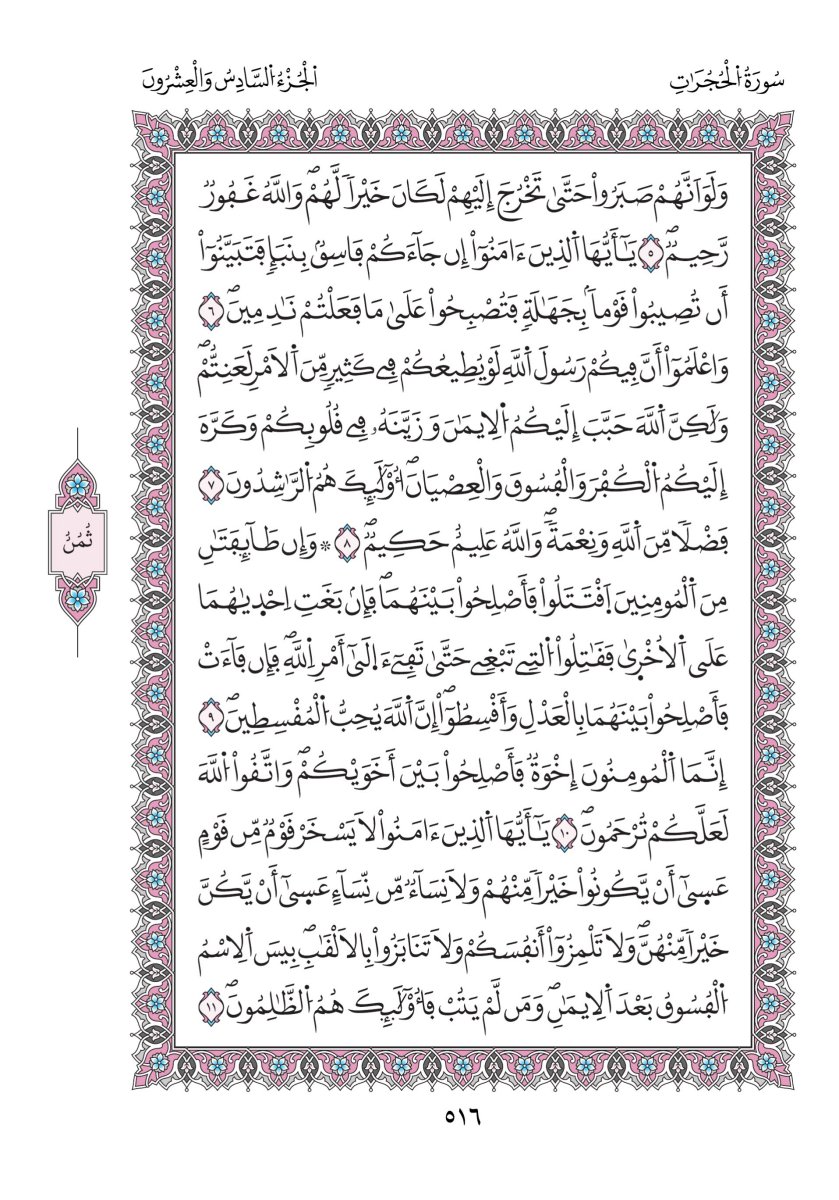 سُورَةُ اُ۬لْحُجُرَاتِ
اَ۬لْجُزْءُ اُ۬لسَّادِسُ وَالْعِشْرُونَ
وَلَوَ اَنَّهُمْ صَبَرُواْ حَتَّىٰ تَخْرُجَ إِلَيْهِمْ لَكَانَ خَيْراٗ لَّهُمْۖ وَاللَّهُ غَفُورٞ
رَّحِيمٞۖ ٥ يَٰٓأَيُّهَا اَ۬لذِينَ ءَامَنُوٓاْ إِن جَآءَكُمْ فَاسِقُۢ بِنَبَإٖ فَتَبَيَّنُوٓاْ
أَن تُصِيبُواْ قَوْماَۢ بِجَهَٰلَةٖ فَتُصْبِحُواْ عَلَىٰ مَا فَعَلْتُمْ نَٰدِمِينَۖ ٦
وَاعْلَمُوٓاْ أَنَّ فِيكُمْ رَسُولَ اَ۬للَّهِ لَوْ يُطِيعُكُمْ فِے كَثِيرٖ مِّنَ اَ۬لَامْرِ لَعَنِتُّمْۖ
وَلَٰكِنَّ اَ۬للَّهَ حَبَّبَ إِلَيْكُمُ اُ۬لِايمَٰنَ وَزَيَّنَهُۥ فِے قُلُوبِكُمْ وَكَرَّهَ
إِلَيْكُمُ اُ۬لْكُفْرَ وَالْفُسُوقَ وَالْعِصْيَانَۖ أُوْلَٰٓئِكَ هُمُ اُ۬لرَّٰشِدُونَ ٧
فَضْلاٗ مِّنَ اَ۬للَّهِ وَنِعْمَةٗۖ وَاللَّهُ عَلِيمٌ حَكِيمٞۖ ٨ ۞ وَإِن طَآئِفَتَٰنِ
مِنَ اَ۬لْمُومِنِينَ اَ۪قْتَتَلُواْ فَأَصْلِحُواْ بَيْنَهُمَاۖ فَإِنۢ بَغَتِ اِحْد۪يٰهُمَا
عَلَى اَ۬لُاخْر۪ىٰ فَقَٰتِلُواْ اُ۬لتِے تَبْغِے حَتَّىٰ تَفِےٓءَ اِ۪لَىٰٓ أَمْرِ اِ۬للَّهِۖ فَإِن فَآءَتْ
فَأَصْلِحُواْ بَيْنَهُمَا بِالْعَدْلِ وَأَقْسِطُوٓاْۖ إِنَّ اَ۬للَّهَ يُحِبُّ اُ۬لْمُقْسِطِينَۖ ٩
إِنَّمَا اَ۬لْمُومِنُونَ إِخْوَةٞ فَأَصْلِحُواْ بَيْنَ أَخَوَيْكُمْۖ وَاتَّقُواْ اُ۬للَّهَ
لَعَلَّكُمْ تُرْحَمُونَۖ ١٠ يَٰٓأَيُّهَا اَ۬لذِينَ ءَامَنُواْ لَا يَسْخَرْ قَوْمٞ مِّن قَوْمٍ
عَس۪ىٰٓ أَنْ يَّكُونُواْ خَيْراٗ مِّنْهُمْ وَلَا نِسَآءٞ مِّن نِّسَآءٍ عَس۪ىٰٓ أَنْ يَّكُنَّ
خَيْراٗ مِّنْهُنَّۖ وَلَا تَلْمِزُوٓاْ أَنفُسَكُمْ وَلَا تَنَابَزُواْ بِالَالْقَٰبِۖ بِيسَ اَ۬لِاسْمُ
اُ۬لْفُسُوقُ بَعْدَ اَ۬لِايمَٰنِۖ وَمَن لَّمْ يَتُبْ فَأُوْلَٰٓئِكَ هُمُ اُ۬لظَّٰلِمُونَۖ ١١
ثُمُنُ
٥١٦